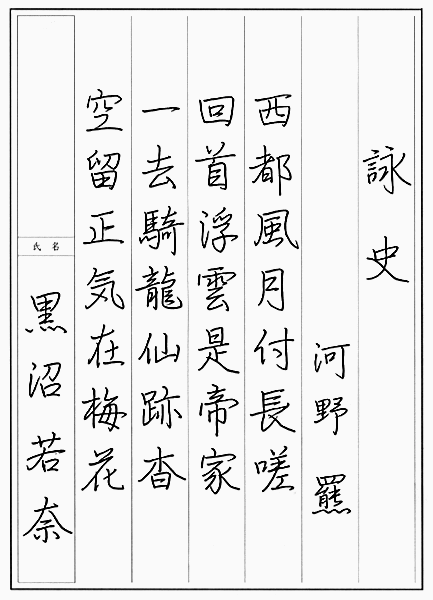 詠史
河野 羆
西都風月付長嗟
回首浮雲是帝家
一去騎龍仙跡杳
空留正気在梅花
氏名
黒沼若奈